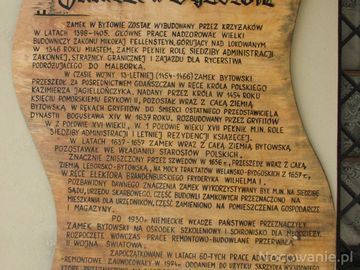 ZAMEK W BYTOWIE ZOSTAŁ WYBUDOWANY PRZEZ KRZYŻAKÓW
W LATACH 1398-1405. GŁÓWNE PRACE NADZOROWAŁ WIELKI
BUDOWNICZY ZAKONU MIKOŁAJ FELLENSTEIN, GÓRUJĄCY NAD LOKOWANYM
W 1346 ROKU MIASTEM, ZAMEK PEŁNIŁ ROLĘ SIEDZIBY ADMINISTRACJI
ZAKONNEJ, STRAŻNICY GRANICZNEJ I ZAJAZDU DLA RYCERSTWA
PODRÓŻUJĄCEGO DO MALBORKA.
W CZASIE WOJNY 13-LETNIEJ (1454-1466) ZAMEK BYTOWSKI
PRZESZEDŁ ZA POŚREDNICTWEM GDAŃSZCZAN W RĘCE KRÓLA POLSKIEGO
KAZIMIERZA JAGIELLOŃCZYKA, NADANY PRZEZ KRÓLA W 1454 ROKU
KSIĘCIU POMORSKIEMU ERYKOWI II, POZOSTAŁ WRAZ Z CAŁĄ ZIEMIĄ
BYTOWSKĄ W RĘKACH GRYFITÓW DO ŚMIERCI OSTATNIEGO PRZEDSTAWICIELA
DYNASTII BOGUSŁAWA XIV W 1639 ROKU, ROZBUDOWANY PRZEZ GRYFITÓW
W 2 POŁOWIE XVI WIEKU, W 1 POŁOWIE XVII WIEKU PEŁNIŁ M.IN. ROLĘ
SIEDZIBY ADMINISTRACJI I LETNIEJ REZYDENCJI KSIĄŻĘCEJ.
W LATACH 1637-1657 ZAMEK WRAZ Z CAŁĄ ZIEMIĄ BYTOWSKĄ
POZOSTAWAŁ WE WŁADANIU STAROSTÓW POLSKICH.
ZNACZNIE ZNISZCZONY PRZEZ SZWEDÓW W 1656 r., PRZESZEDŁ WRAZ Z CAŁĄ
ZIEMIĄ LĘBORSKO-BYTOWSKĄ, NA MOCY TRAKTATÓW WELAWSKO-BYDGOSKICH Z 1657 r.,
W RĘCE ELEKTORA BRANDENBURSKIEGO FRYDERYKA WILHELMA I,
POZBAWIONY DAWNEGO ZNACZENIA ZAMEK WYKORZYSTYWANY BYŁ M.IN. NA SIEDZIBĘ
SĄDU, URZĘDU SKARBOWEGO, CZĘŚĆ BUDOWLI ZAMKOWYCH PRZEZNACZONO NA
MIESZKANIA DLA URZĘDNIKÓW, CZĘŚĆ ZAMIENIONO NA POMIESZCZENIA GOSPODARCZE
I MAGAZYNY.
PO 1930 r. NIEMIECKIE WŁADZE PAŃSTWOWE PRZEZNACZYŁY
ZAMEK BYTOWSKI NA OŚRODEK SZKOLENIOWY I SCHRONISKO DLA MŁODZIEŻY.
ROZPOCZĘTE WÓWCZAS PRACE REMONTOWO-BUDOWLANE PRZERWAŁA
II WOJNA ŚWIATOWA.
ZAPOCZĄTKOWANE W LATACH 60-TYCH PRACE
-REMONTOWE ZAKOŃCZONO W 1974 r. ODDANIEM DO UŻYTKU SKRZYDŁA
nocowanie.pl